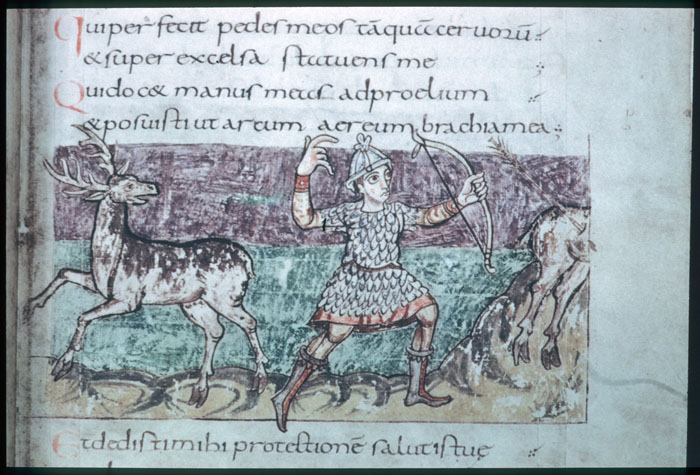 Qui perfecit pedes meos tāquā ceruorū
& super excelsa statuens me
Qui doc& manus meas ad proelium
& posuisti ut arcum aereum brachia mea
Et dedisti mihi protectionē salutis tuę